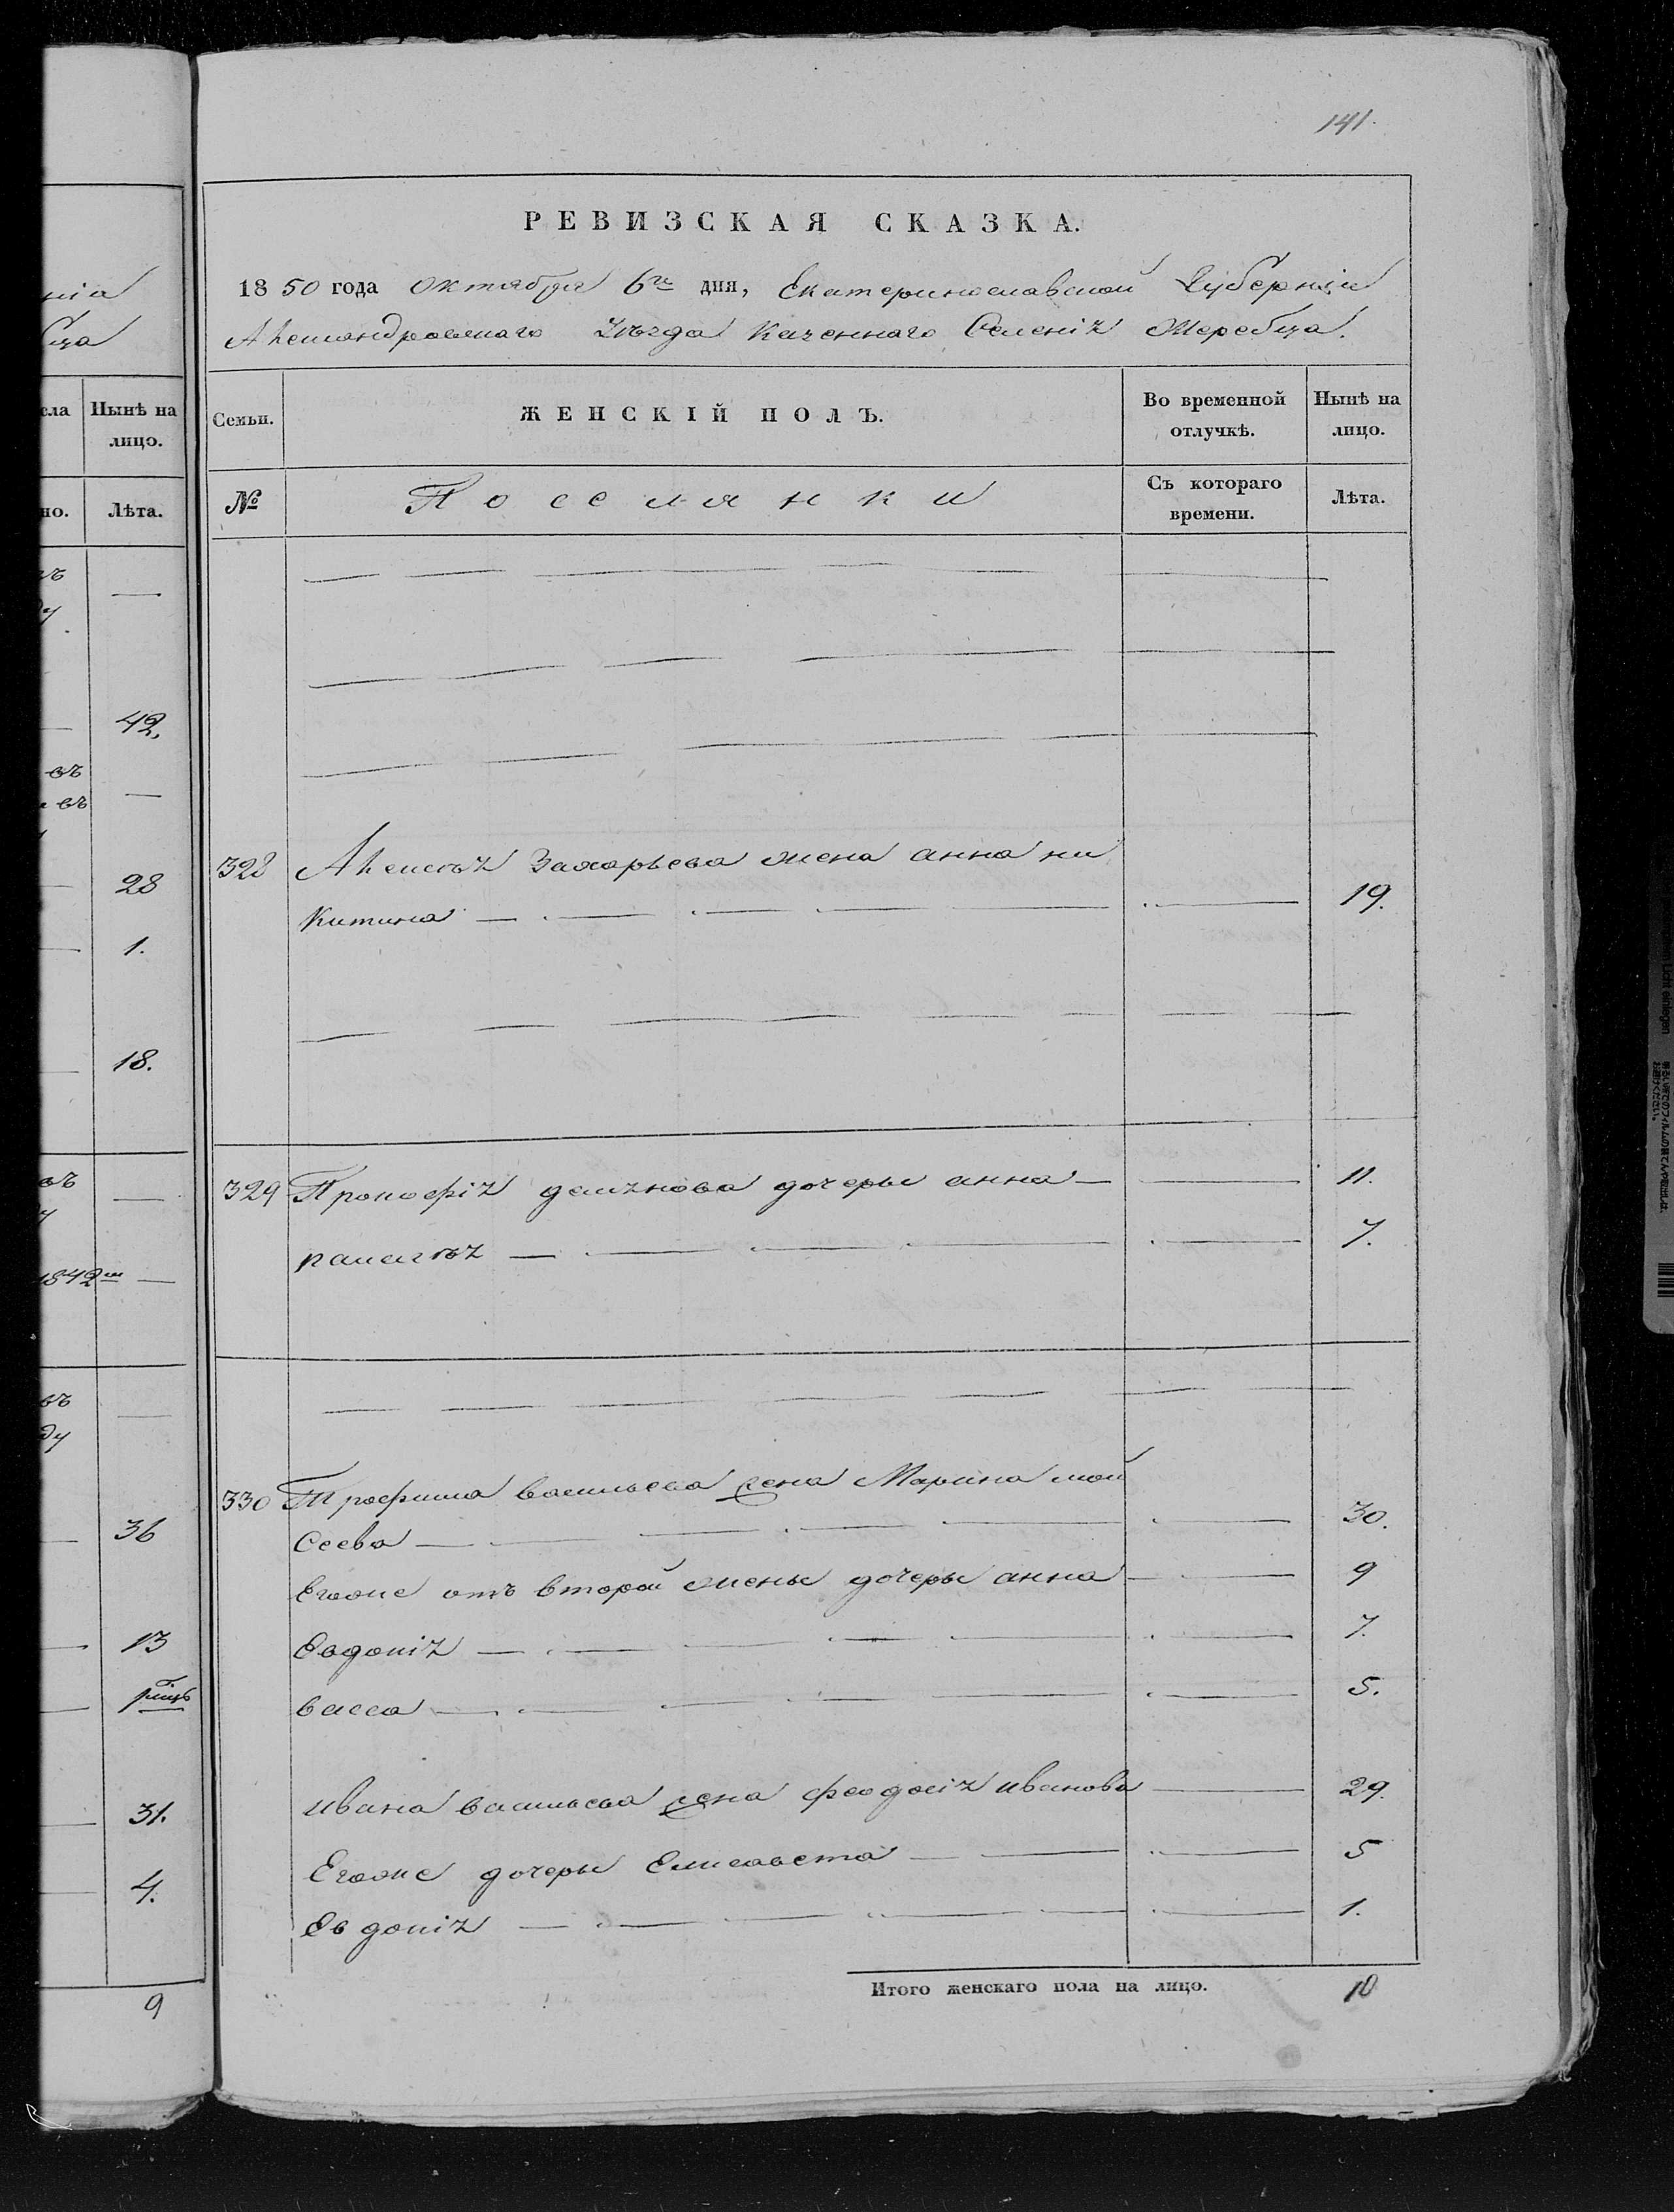 141.
РЕВИЗСКАЯ СКАЗКА.
1850 года Октября 6го дня, Екатеринославской Губерніи
Александровскаго Уѣзда Казеннаго Селенія Жеребца.
Семьи.
ЖЕНСКІЙ ПОЛЪ.
Во временной отлучкѣ.
Нынѣ на лицо.
№
Поселянки
Съ котораго времени.
Лѣта.
328 Алексѣя Захарьева жена анна ни
китина 19.
329 Прокофія демянова дочеры анна 11.
пелагѣя 7.
330 Трофима васильева жена Марина мой
сеева 30.
Егоже отъ второй жены дочеры анна 9
Евдокія 7.
васса 5.
ивана васильева жена феодосія иванова 29.
Егоже дочеры Елисавета 5
Евдокія 1.
Итого женскаго пола на лицо. 10
нія
бца
сла
Нынѣ на
лицо.
но.
Лѣта.
42.
въ
въ
28
1.
18.
въ
1842
въ
ду
36
13
31.
4.
9